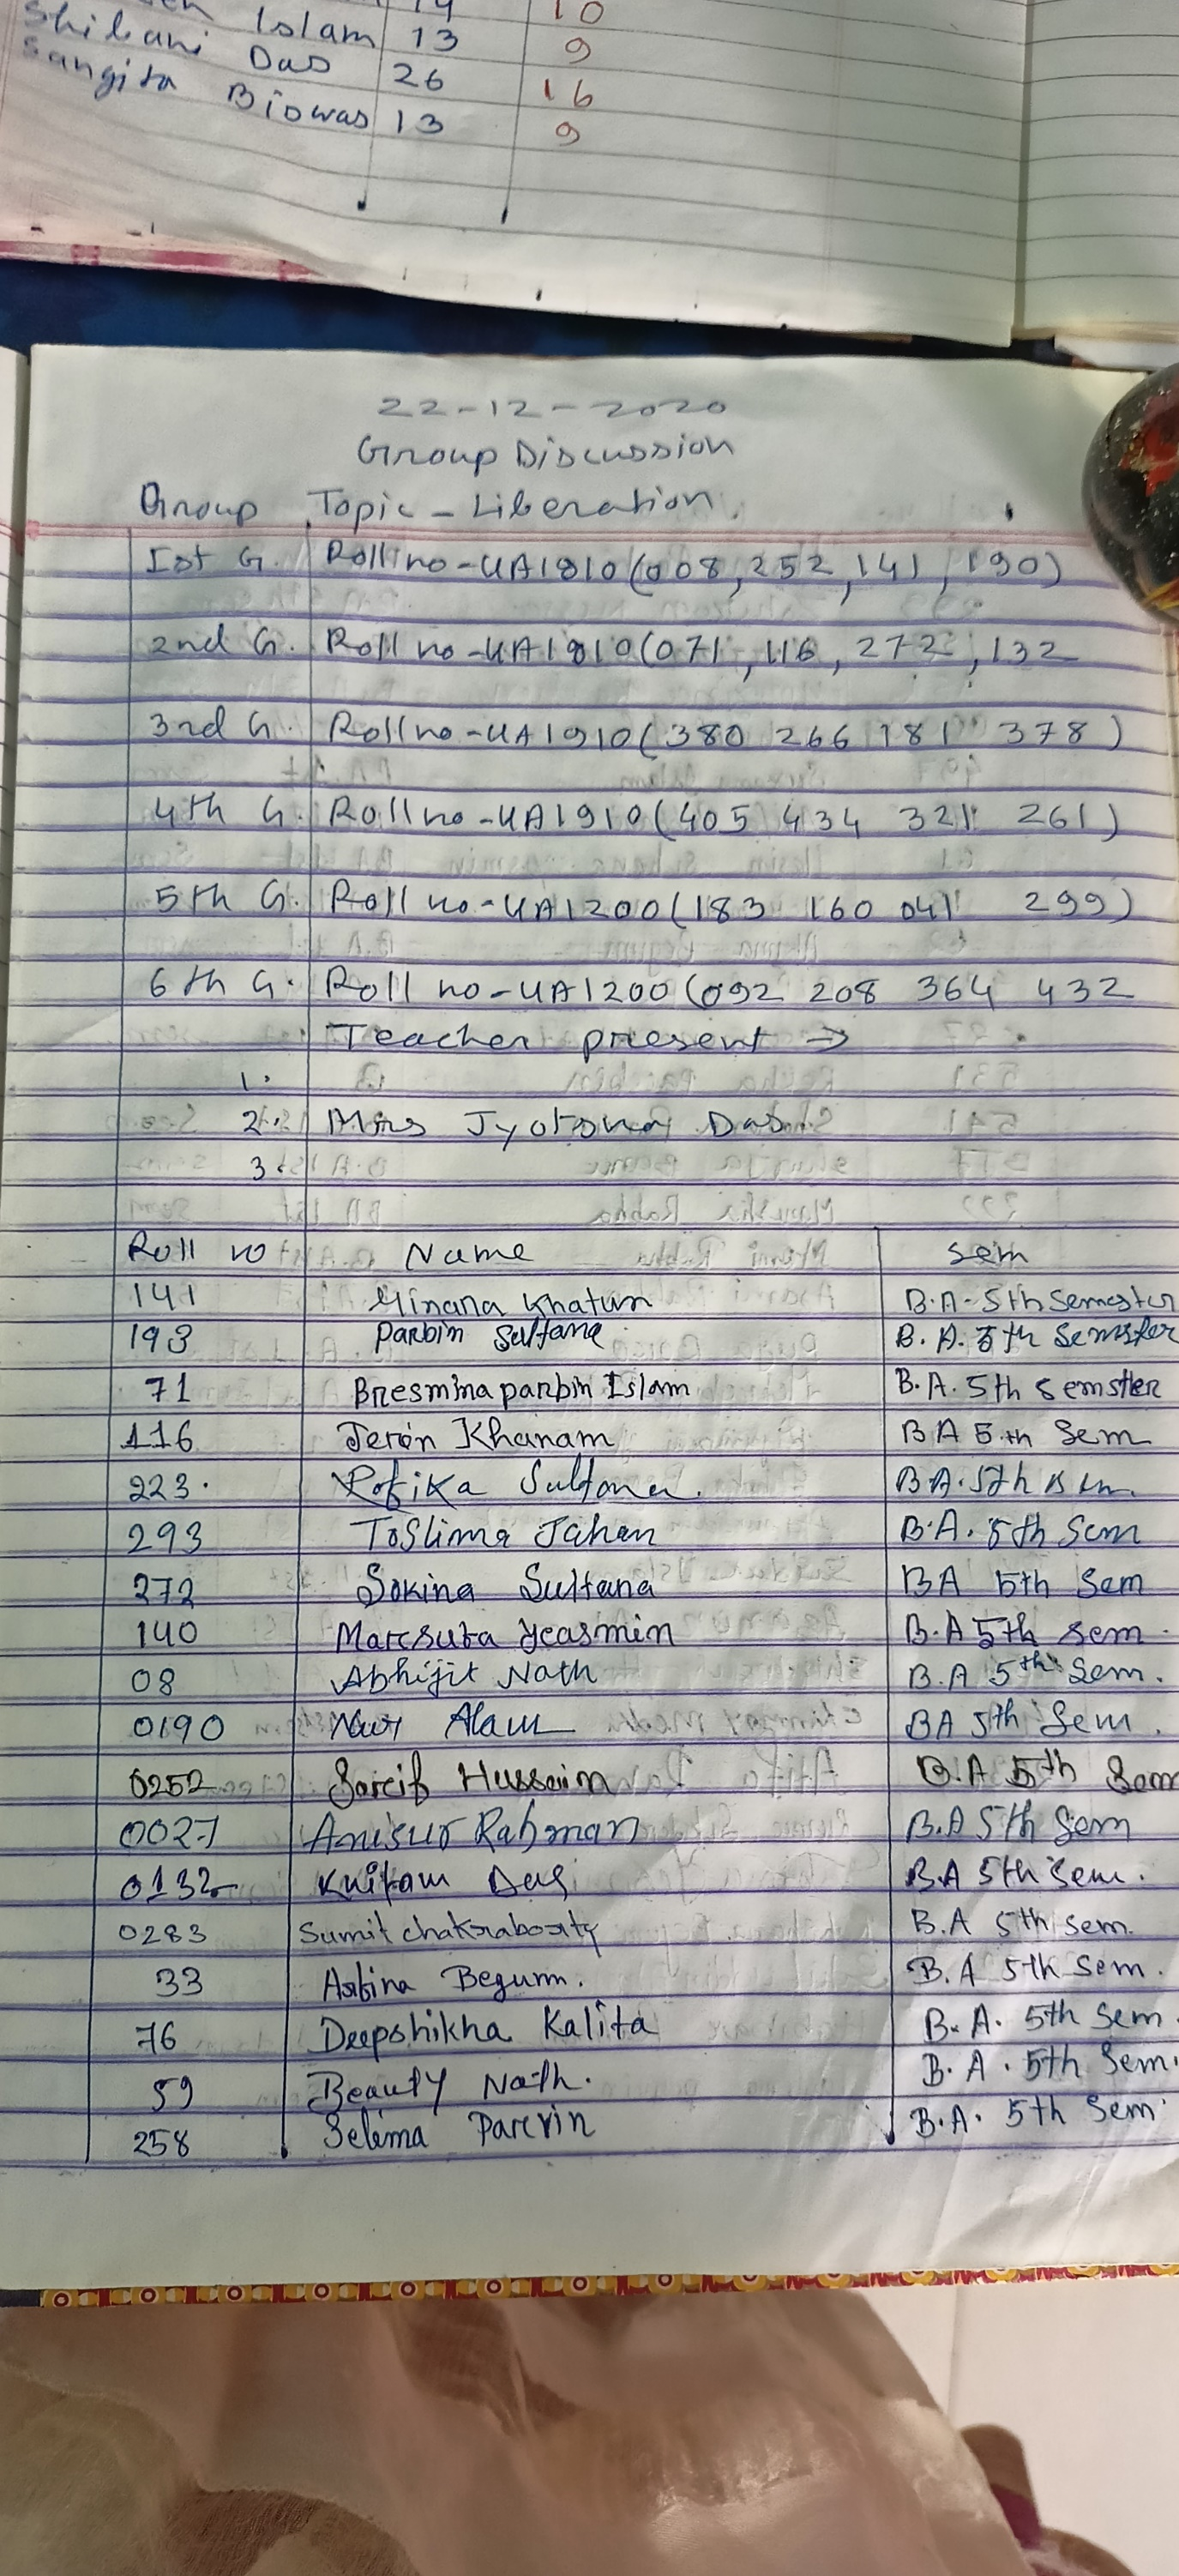 14 10
Islam 13 9
Shibani Das 26 16
Sangita Biswas 13 9
22-12-2020
Group Discussion
Group Topic - Liberation.
Ist G. Roll no - UA1810 (008, 252, 141, 190)
2nd G. Roll no - UA1810 (071, 116, 272, 132
3rd G. Roll no - UA1910 (380 266 181 378)
4th G. Roll no - UA1910 (405 434 321 261)
5th G. Roll no - UA1200 (183 160 041 299)
6th G. Roll no - UA1200 (092 208 364 432
Teacher present →
1.
2. Mrs Jyotsna Das.
3
Roll no Name sem
141 Minara Khatun B.A - 5th Semester
193 Parbin Sultana B. A. 5th Semister
71 Bresmina parbin Islam B.A. 5th semster
116 Jerin Khanam BA 5th Sem
223. Rofika Sultana. B.A. 5th sem.
293 Toslima Jahan B.A. 5th Sem
272 Sokina Sultana BA 5th Sem
140 Marsuta Yeasmin B.A 5th sem.
08 Abhijit Nath B.A 5th Sem.
0190 Nur Alam BA 5th Sem.
0252 Hussain B.A 5th Sem
0027 Anisur Rahman B.A 5th Sem
0132 Das B.A 5th Sem.
0283 Sumit chakraborty B.A 5th sem.
33 Asbina Begum. B.A 5th Sem.
76 Deepshikha Kalita B. A. 5th Sem.
59 Beauty Nath. B. A. 5th Sem.
258 Selima Parvin B.A. 5th Sem.